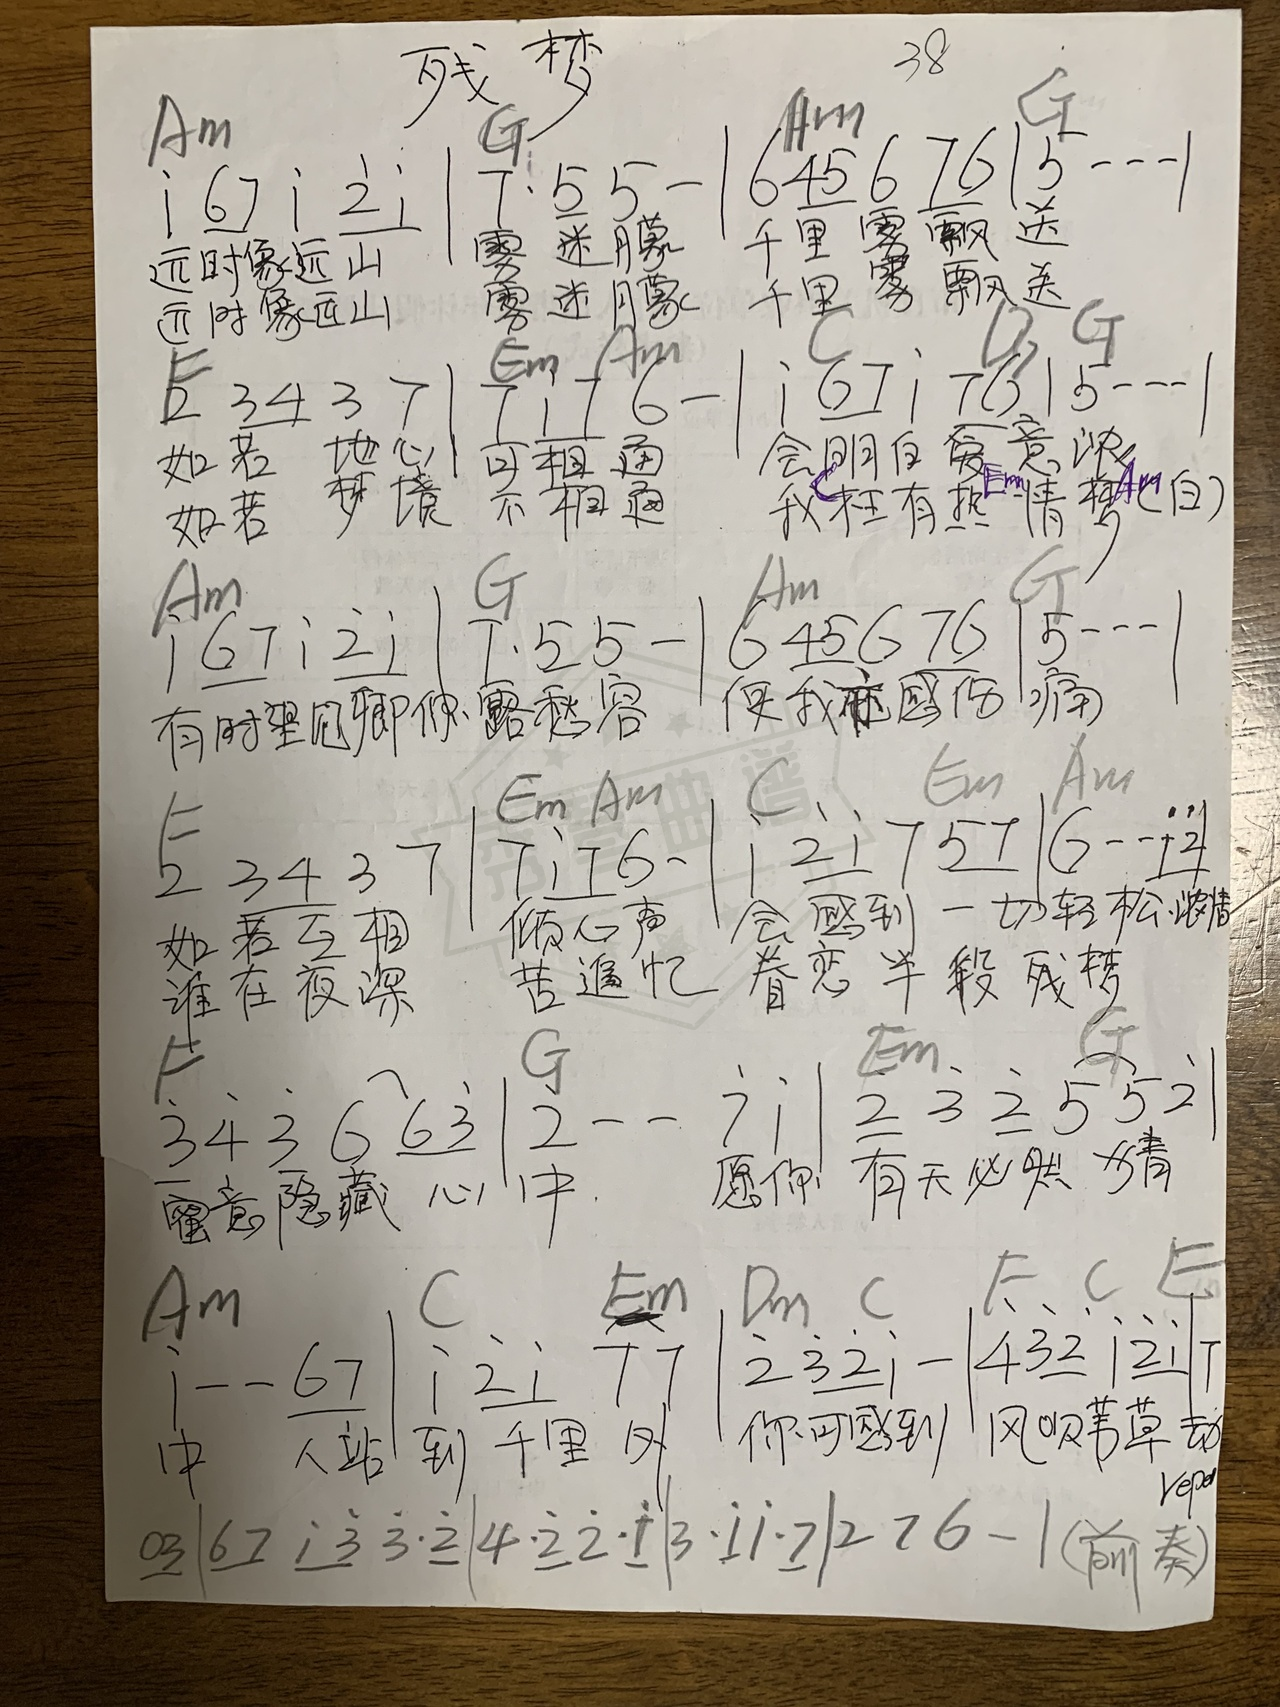 残梦 38
Am G Am G
i 67 i 2i | 7·5 5 - | 6 45 6 76 | 5 - - - |
远时像远山 雾迷朦 千里雾飘送
远时像远山 雾迷朦 千里雾飘送
F Em Am C D G
2 34 3 7 | 7i7 6 - | i 67 i 76 | 5 - - - |
如若地心可相通 会明白爱意浓
C Em Am
如若梦境不相通 我枉有热情梦(白)
Am G Am G
i 67 i 2i | 7·5 5 - | 6 45 6 76 | 5 - - - |
有时望见卿你露愁容 使我亦感伤痛
F Em Am C Em Am
2 34 3 7 | 7i7 6 - | i 2i 7 57 | 6 - - i2 |
如若互相倾心声 会感到一切轻松浓情
谁在夜深苦追忆 眷恋半段残梦
F G Em G
3 4 3 6 63 | 2 - - 7 i | 2 3 2 5 5 2 |
蜜意隐藏心中 愿你有天必然情
Am C Em Dm C F C E
i - - 67 | i 2i 7 7 | 2 32 i - | 4 32 i 2i | 7
中 人站到千里外 你可感到 风吹苇草动
03 | 67 i3 3·2 | 4·2 2·i | 3·i i·7 | 2 7 6 - | (前奏)